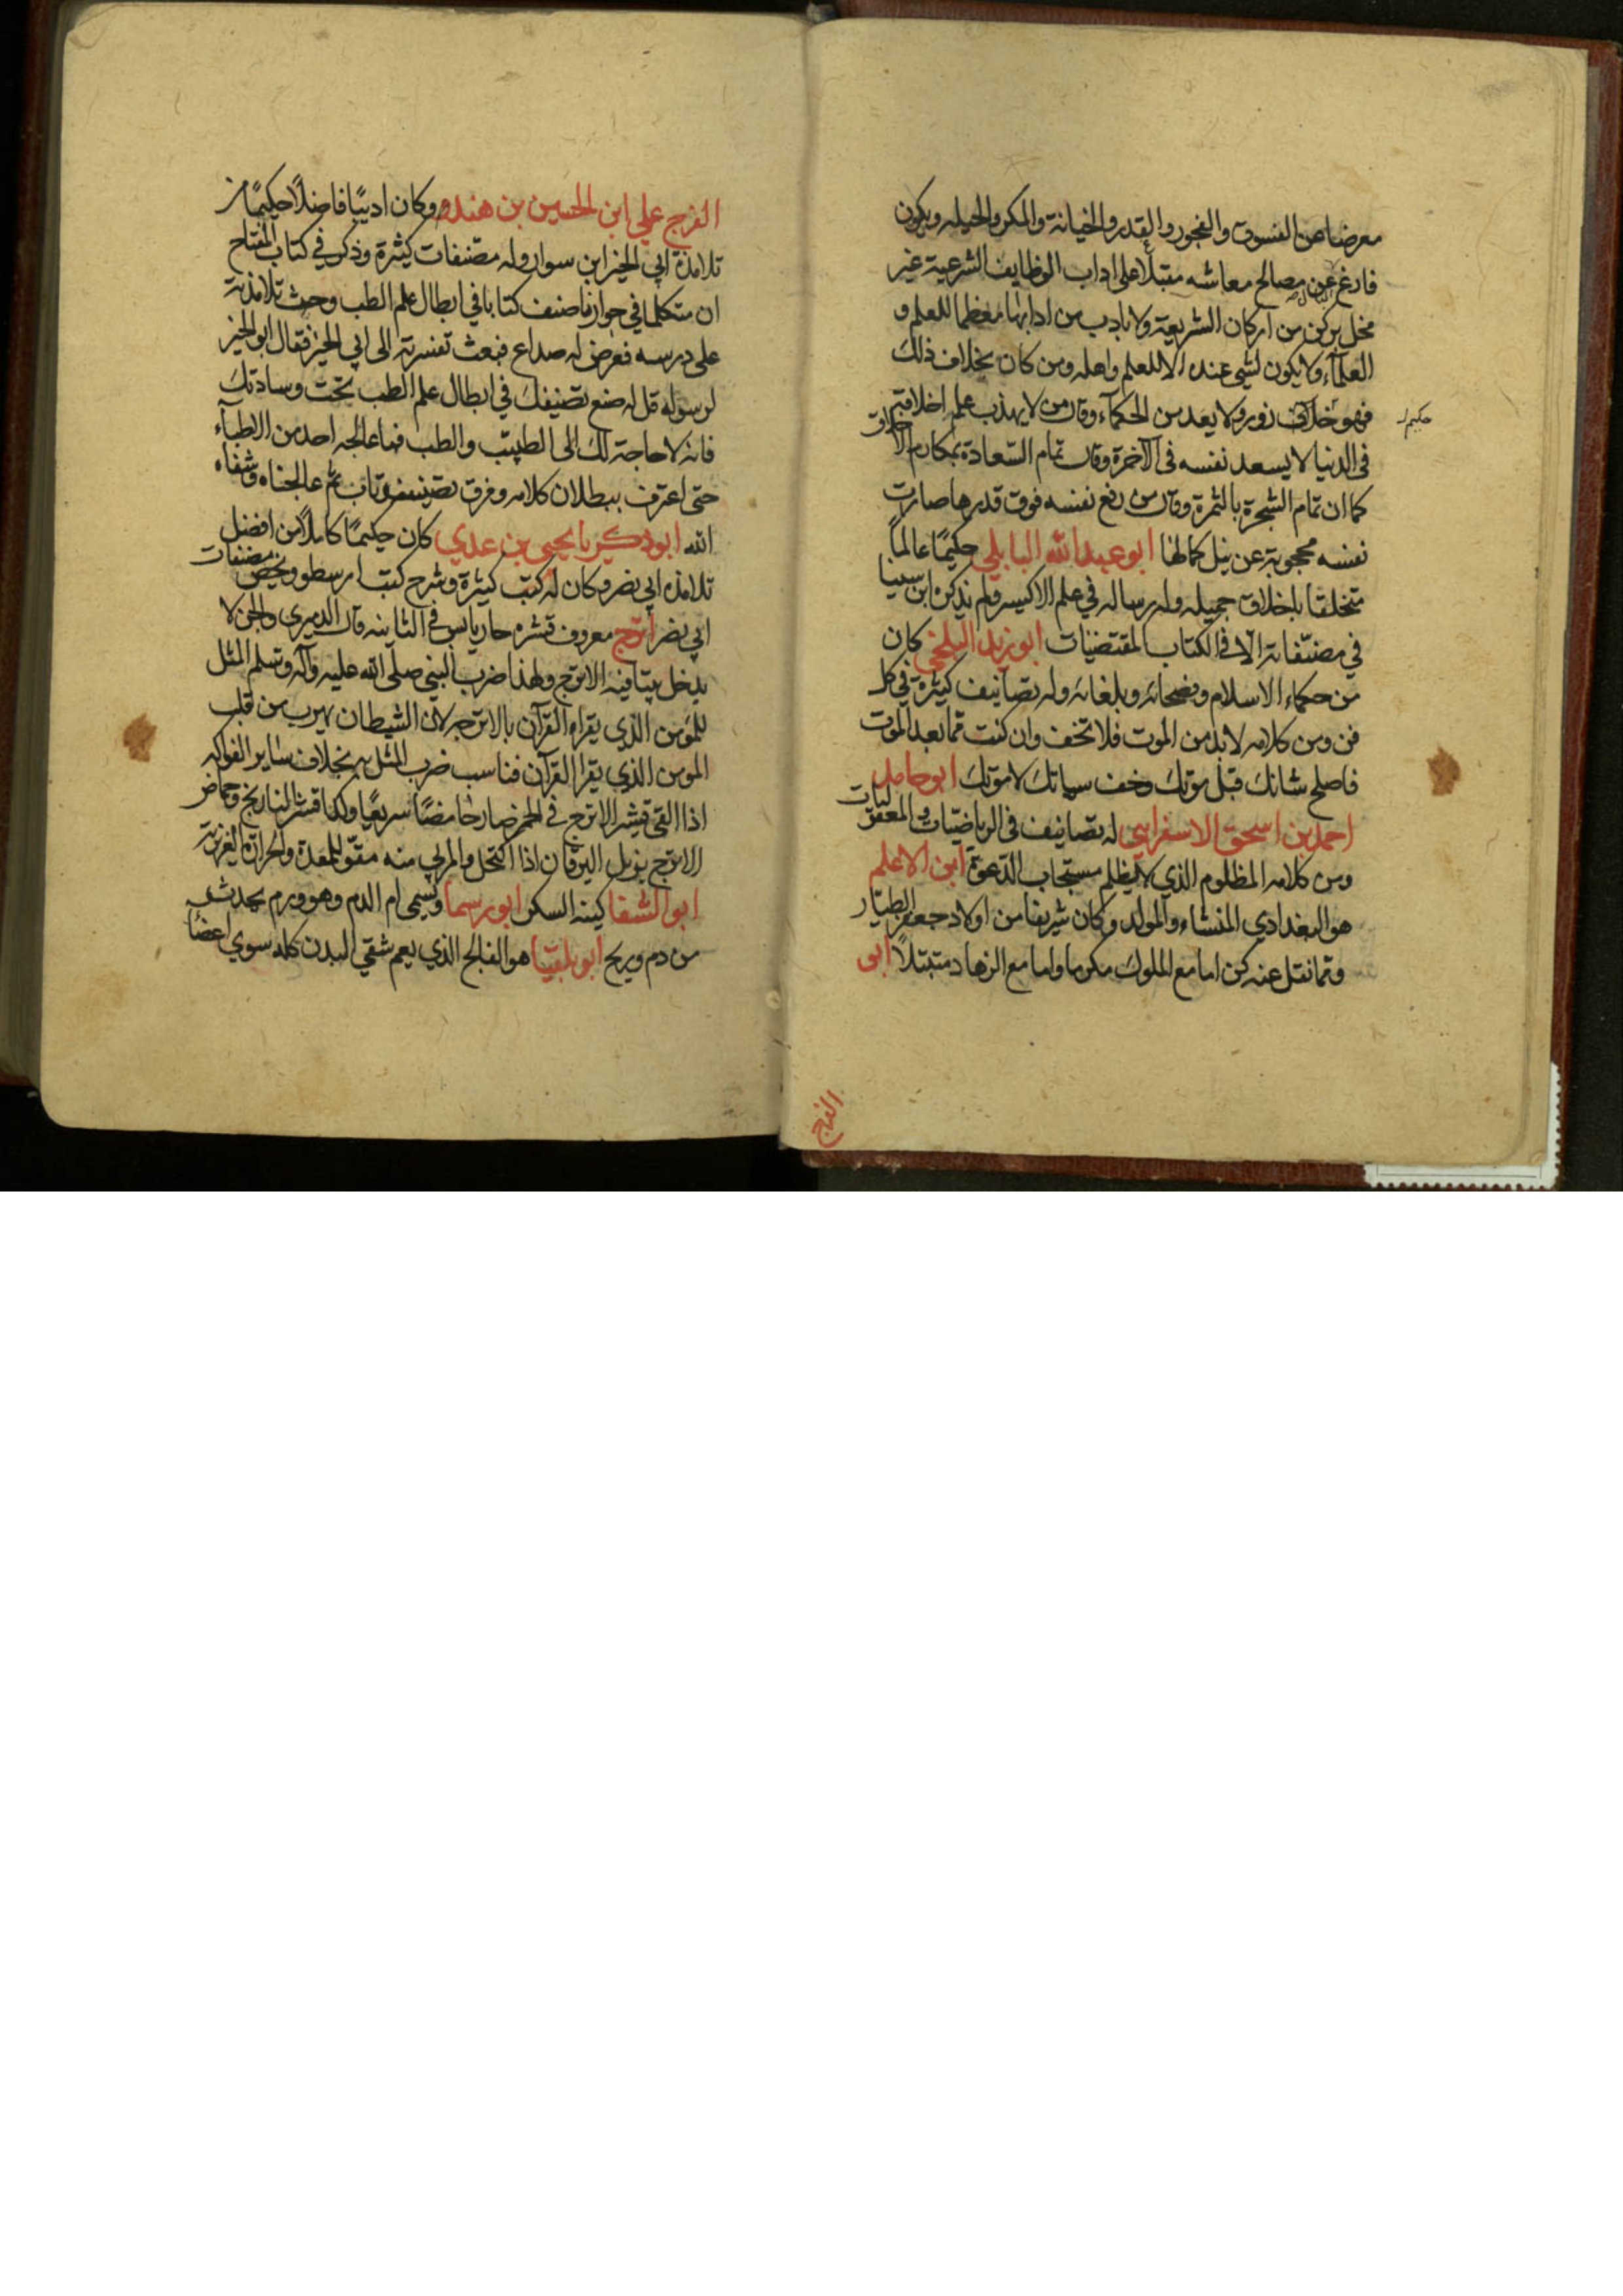 معرضا عن الفسوق والفجور والغدر والخيانة والمكر والحيله ويكون
فارغ عن مصالح معاشه مقبلا على اداب الوظايف الشرعية غير
مخل بركن من اركان الشريعة ولا بادب من ادابها معظما للعلم و
العلمآء ولا يكون لشي عنده الا للعلم واهله ومن كان بخلاف ذلك
فهو زور ولا يعد من الحكمآء وقال من لا يهذب علمه اخلاقه
حكيم
فى الدنيا لا يسعد نفسه فى الآخرة وقال تمام السّعادة بمكارم الاخلاق
كما ان تمام الشجرة بالثمرة وقال من رفع نفسه فوق قدرها صارت
نفسه محجوبة عن نيل كمالها ابو عبد الله البابلي حكيمًا عالماً
متخلقا باخلاق جميله وله رساله في علم الاكسير ولم يذكره ابن سينا
في مصنّفاته الّا فى الكتاب المقتضيات ابو زيد البلخي كان
من حكماء الاسلام وفصحائه وبلغائه وله تصانيف كثيرة في كل
فن ومن كلامه لابد من الموت فلا تخف وان كنت مما بعد الموت
فاصلح شانك قبل موتك وخف سياتك لا موتك ابو حامد
احمد بن اسحق الاسفرايي له تصانيف فى الرياضيّات والمعقولات
ومن كلامه المظلوم الذي لا يظلم مستجاب الدّعوة ابن الاعلم
هو البغدادي المنشاء والمولد وكان شريفا من اولاد جعفر الطيّار
ومما نقل عنه كن اما مع الملوك مكرما واما مع الزهاد متبتلاً ابى
الفرج
الفرج علي ابن الحسين بن هندو وكان اديبًا فاضلًا حكيمًا من
تلامذة ابي الخير ابن سوار وله مصنفات كثيرة وذكر في كتاب المفتاح
ان متكلما في جوارنا صنف كتابا في ابطال علم الطب وحث تلامذته
على درسه فعرض له صداع فبعث تفسرته الى ابي الخير فقال ابو الخير
لرسوله قل له ضع تصنيفك في ابطال علم الطب تحت وسادتك
فانه لا حاجة لك الى الطبيب والطب فما عالجه احد من الاطبآء
حتى اعترف ببطلان كلامه وفرق تصنيفه وتاب ثم عالجناه وشفاه
الله ابو ذكريا يحيى بن عدي كان حكيمًا كاملًا من افضل
تلامذه ابي نصر وكان له كتب كثيرة وشرح كتب ارسطو ولخص مصنفات
ابي نصر اترج معروف قشره حار يابس في الثانيه قال الدميرى والجن لا
يدخل بيتا فيه الاترج ولهذا ضرب النبي صلى الله عليه وآله وسلم المثل
للمؤمن الذي يقراء القرآن بالاترجه لان الشيطان يهرب من قلب
المومن الذي يقرا القرآن فناسب ضرب المثل به بخلاف ساير الفواكه
اذا القي قشر الاترج في الخمر صار حامضًا سريعًا وكذا قشر النارنج وحماض
الاترج يزيل اليرقان اذا اكتحل والمربى منه مقوّ للمعدة والحرارة الغريزية
ابو الشفا كنية السكر ابو رسما ويسمى ام الدم وهو ورم يحدث
من دم وريح ابو بلقيسا هو الفالج الذي يعم شقي البدن كله سوي اعضاء